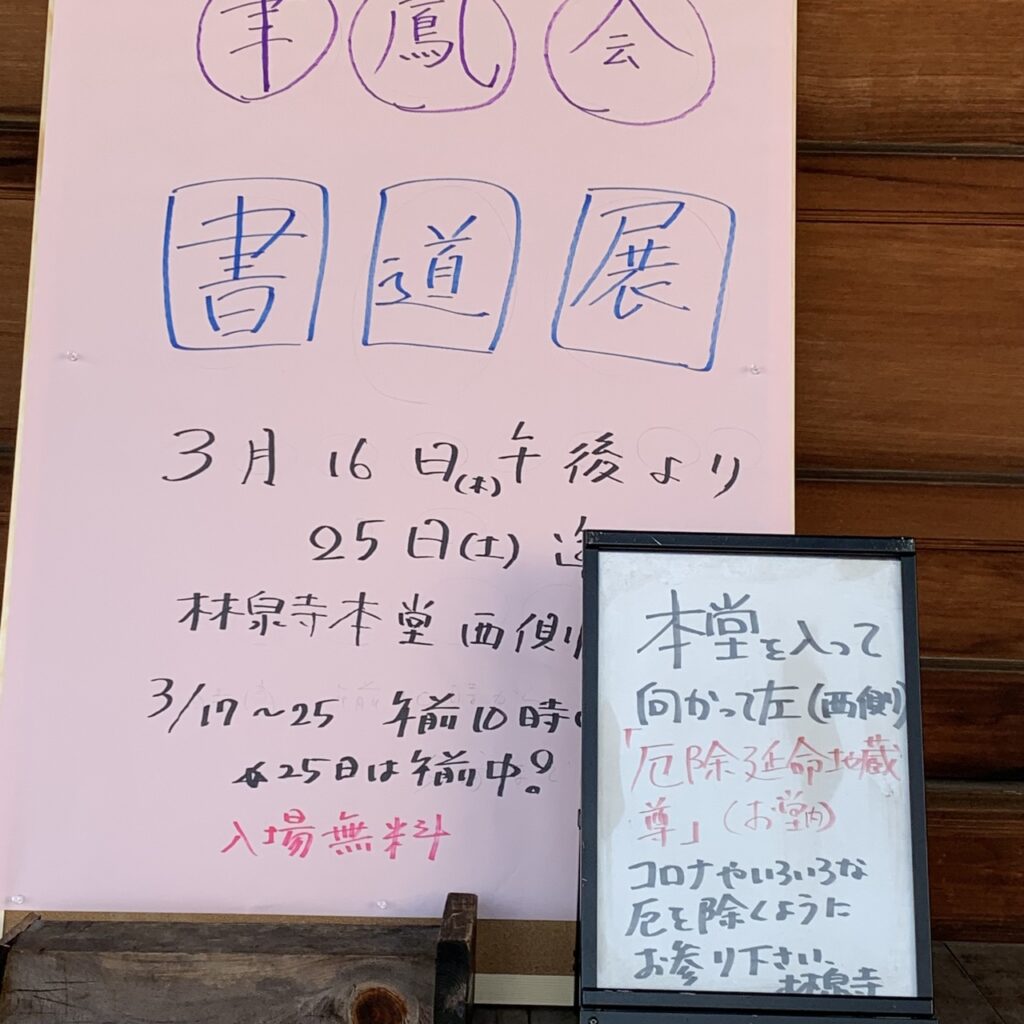 鳳会
書道展
3月16日(木)午後より
25日(土)迄
林泉寺本堂西側
3/17〜25 午前10時
25日は午前中?
入場無料
本堂を入って
向かって左(西側)
「厄除延命地蔵
尊」(お堂内)
コロナやいろいろな
厄を除くように
お参り下さい、
林泉寺